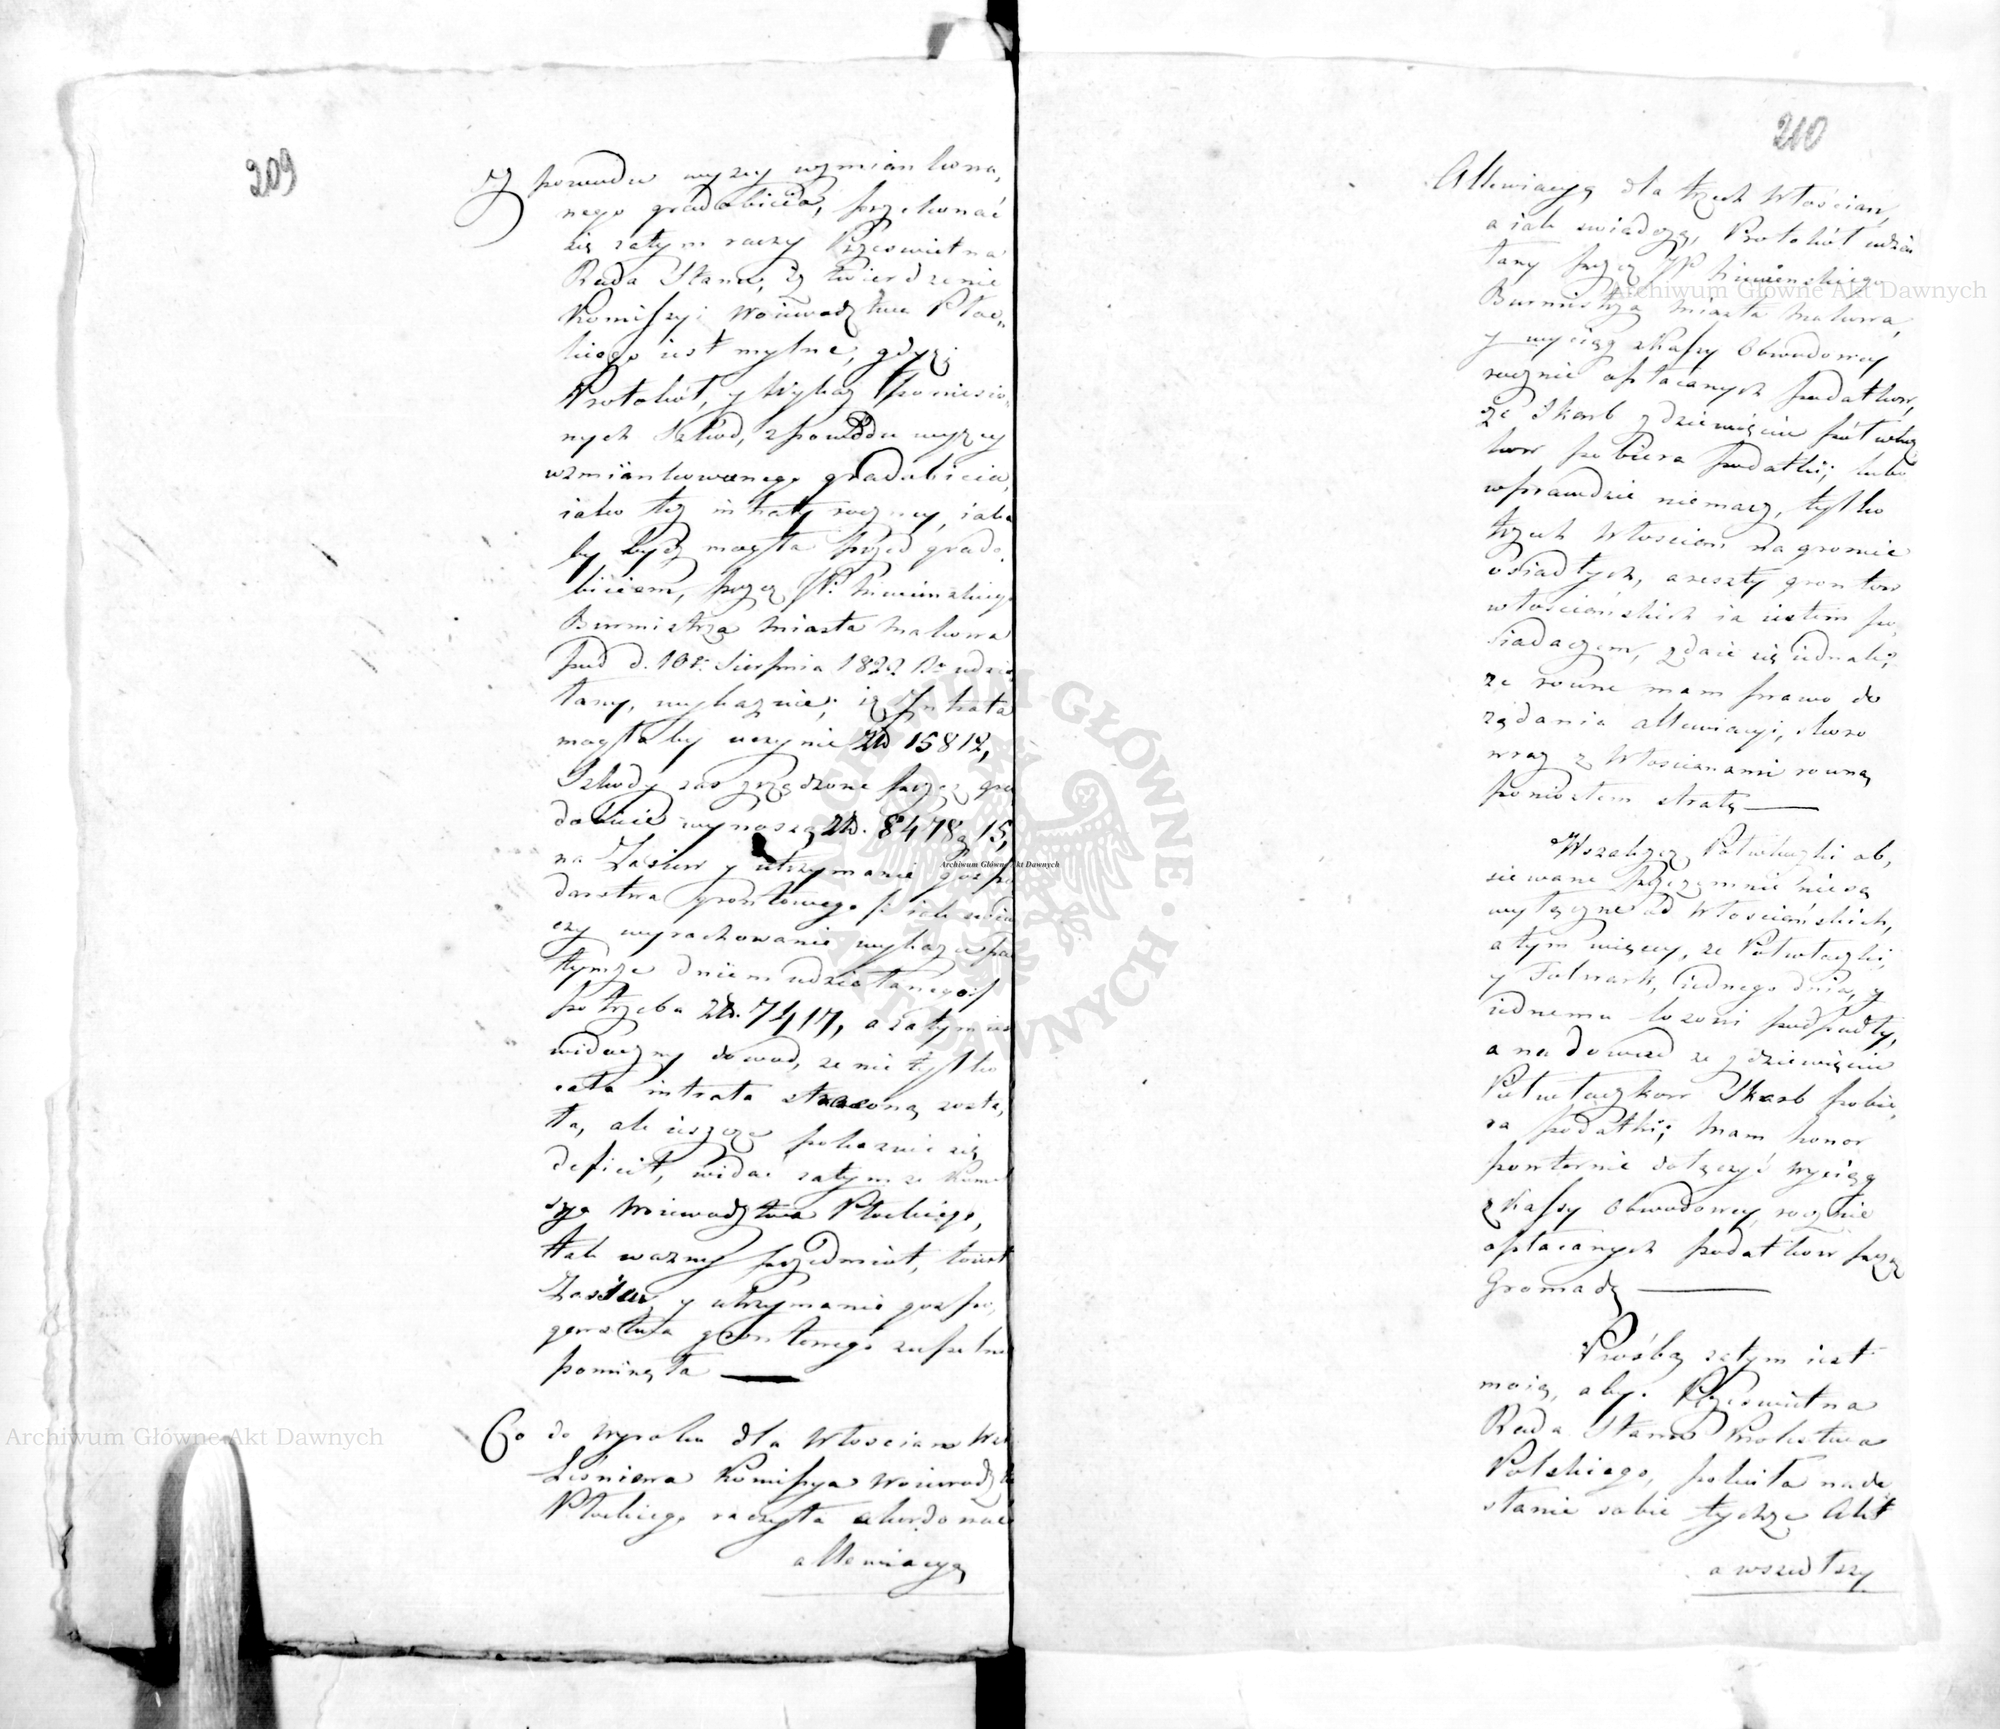 209
Z powodu wyzey wzmiankowa,
nego gradobicia, przekonać
się zatym raczy Prześwietna
Rada Stanu, iż twierdzenie
Kommissyi Woiewodztwa Płoc,
kiego iest mylne, gdyż
Protokół, y Wykaz poniesio,
nych Szkod, z powodu wyzey
wzmiankowanego gradobicia,
iako też intraty roczney, iaka
by bydź mogła przed grado
biciem, przez JP.
Burmistrza Miasta Makowa
pod d. 10 Sierpnia 1822 Ru udzia
łany, wykazuie; iż Intrata
mogłaby uczynić Zł 15812,
Szkody zas zrządzone przez gra
dobicie wynoszą Zł. 8478 g 15,
na Zasiew y utrzymanie gospo
darstwa grontowego /: iak swiad
czy wyrachowanie wykazu pod
tymże dniem udziałanego :/
potrzeba Zł. 7417, a zatym ies
widoczny dowod, ze nie tylko
cała intrata straconą zosta,
ła, ale ieszcze pokazuie się
deficit, widać zatym ze Kom
sya Woiewodztwa Płockiego,
tak wazny przedmiot, to iest
Zasiew, y utrzymanie gospo,
darstwa grontowego zupełnie
pominęła
Co do wyroku dla Włościan Wsi
Leśniewa Kommissya Woiewodztwa
Płockiego raczyła akordować
allewiacyą
210
Allewiacyą dla trzech Włościan,
a iak swiadczą, Protokół udzia
łany przez JP
Burmistrza Miasta Makowa,
y wyciąg z Kassy Obwodowey
rocznie opłacanych podatkow,
że Skarb z dziewięciu pół włoz
kow pobiera podatki; lubo
wprawdzie niemasz, tylko
trzech Włościan na groncie
osiadłych, a reszty grontow
włościańskich ia iestem po,
siadaczem, zdaie się iednak,
ze rowne mam prawo do
żądania allewiacyi, skoro
wraz z Włościanami rowną
poniosłem stratę
Wszakże Połwłoczki ob,
siewane przezemnie niesą
wyłączne od Włościańskich,
a tym więcey, ze Połwłoczki,
y Folwark, iednego dnia, y
iednemu losowi podpadły,
a na dowod ze z dziewięciu
Połwłoczkow Skarb pobie,
ra podatki; mam honor
powtornie dołączyć wyciąg
z Kassy Obwodowey, rocznie
opłacanych podatkow przez
Gromadę
Prośbą zatym iest
moią, aby. Prześwietna
Rada Stanu Krolestwa
Polskiego, poleciła nade
słanie sobie tychże Akt
a wszedłszy
Archiwum Główne Akt Dawnych
Archiwum Główne Akt Dawnych
Archiwum Główne Akt Dawnych
ARCHIWUM GŁÓWNE AKT DAWNYCH